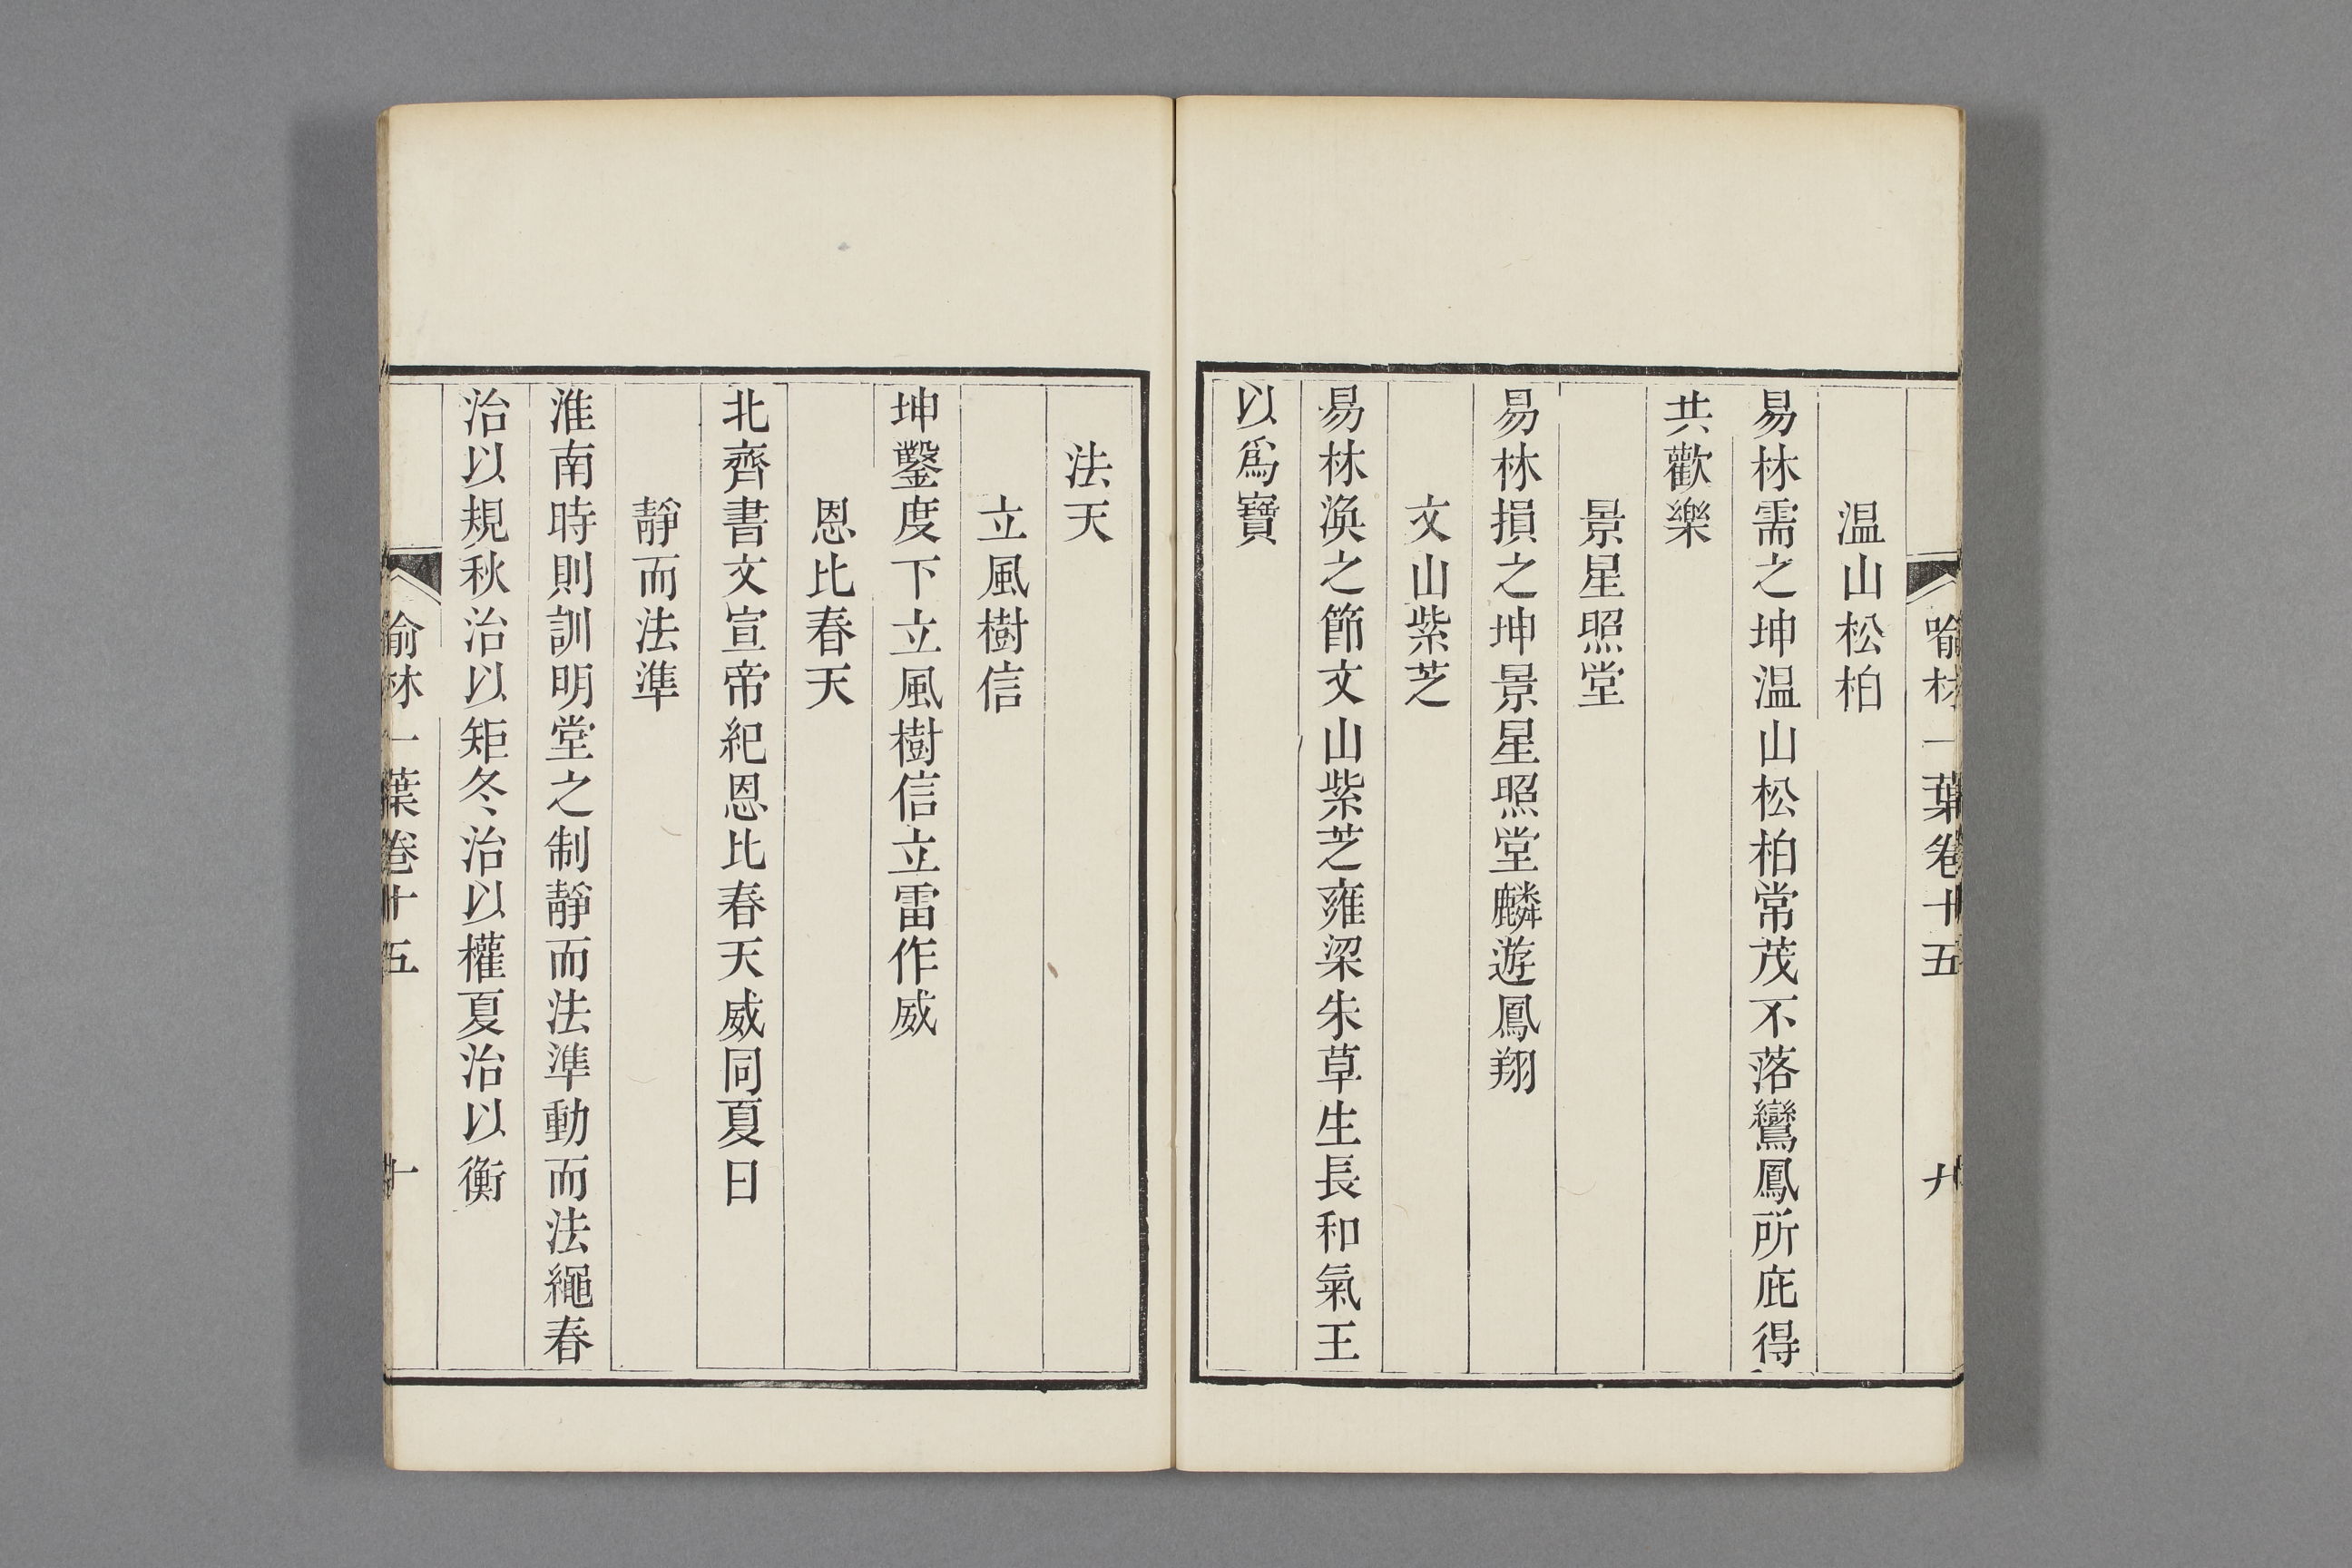 喻林一葉卷十五 九
温山松柏
易林需之坤温山松柏常茂不落鸞鳳所庇得
共歡樂
景星照堂
易林損之坤景星照堂麟遊鳳翔
文山紫芝
易林渙之節文山紫芝雍梁朱草生長和氣王
以爲寶
法天
立風樹信
坤鑿度下立風樹信立雷作威
恩比春天
北齊書文宣帝紀恩比春天威同夏日
靜而法準
淮南時則訓明堂之制靜而法準動而法繩春
治以規秋治以矩冬治以權夏治以衡
喻林一葉卷十五 十